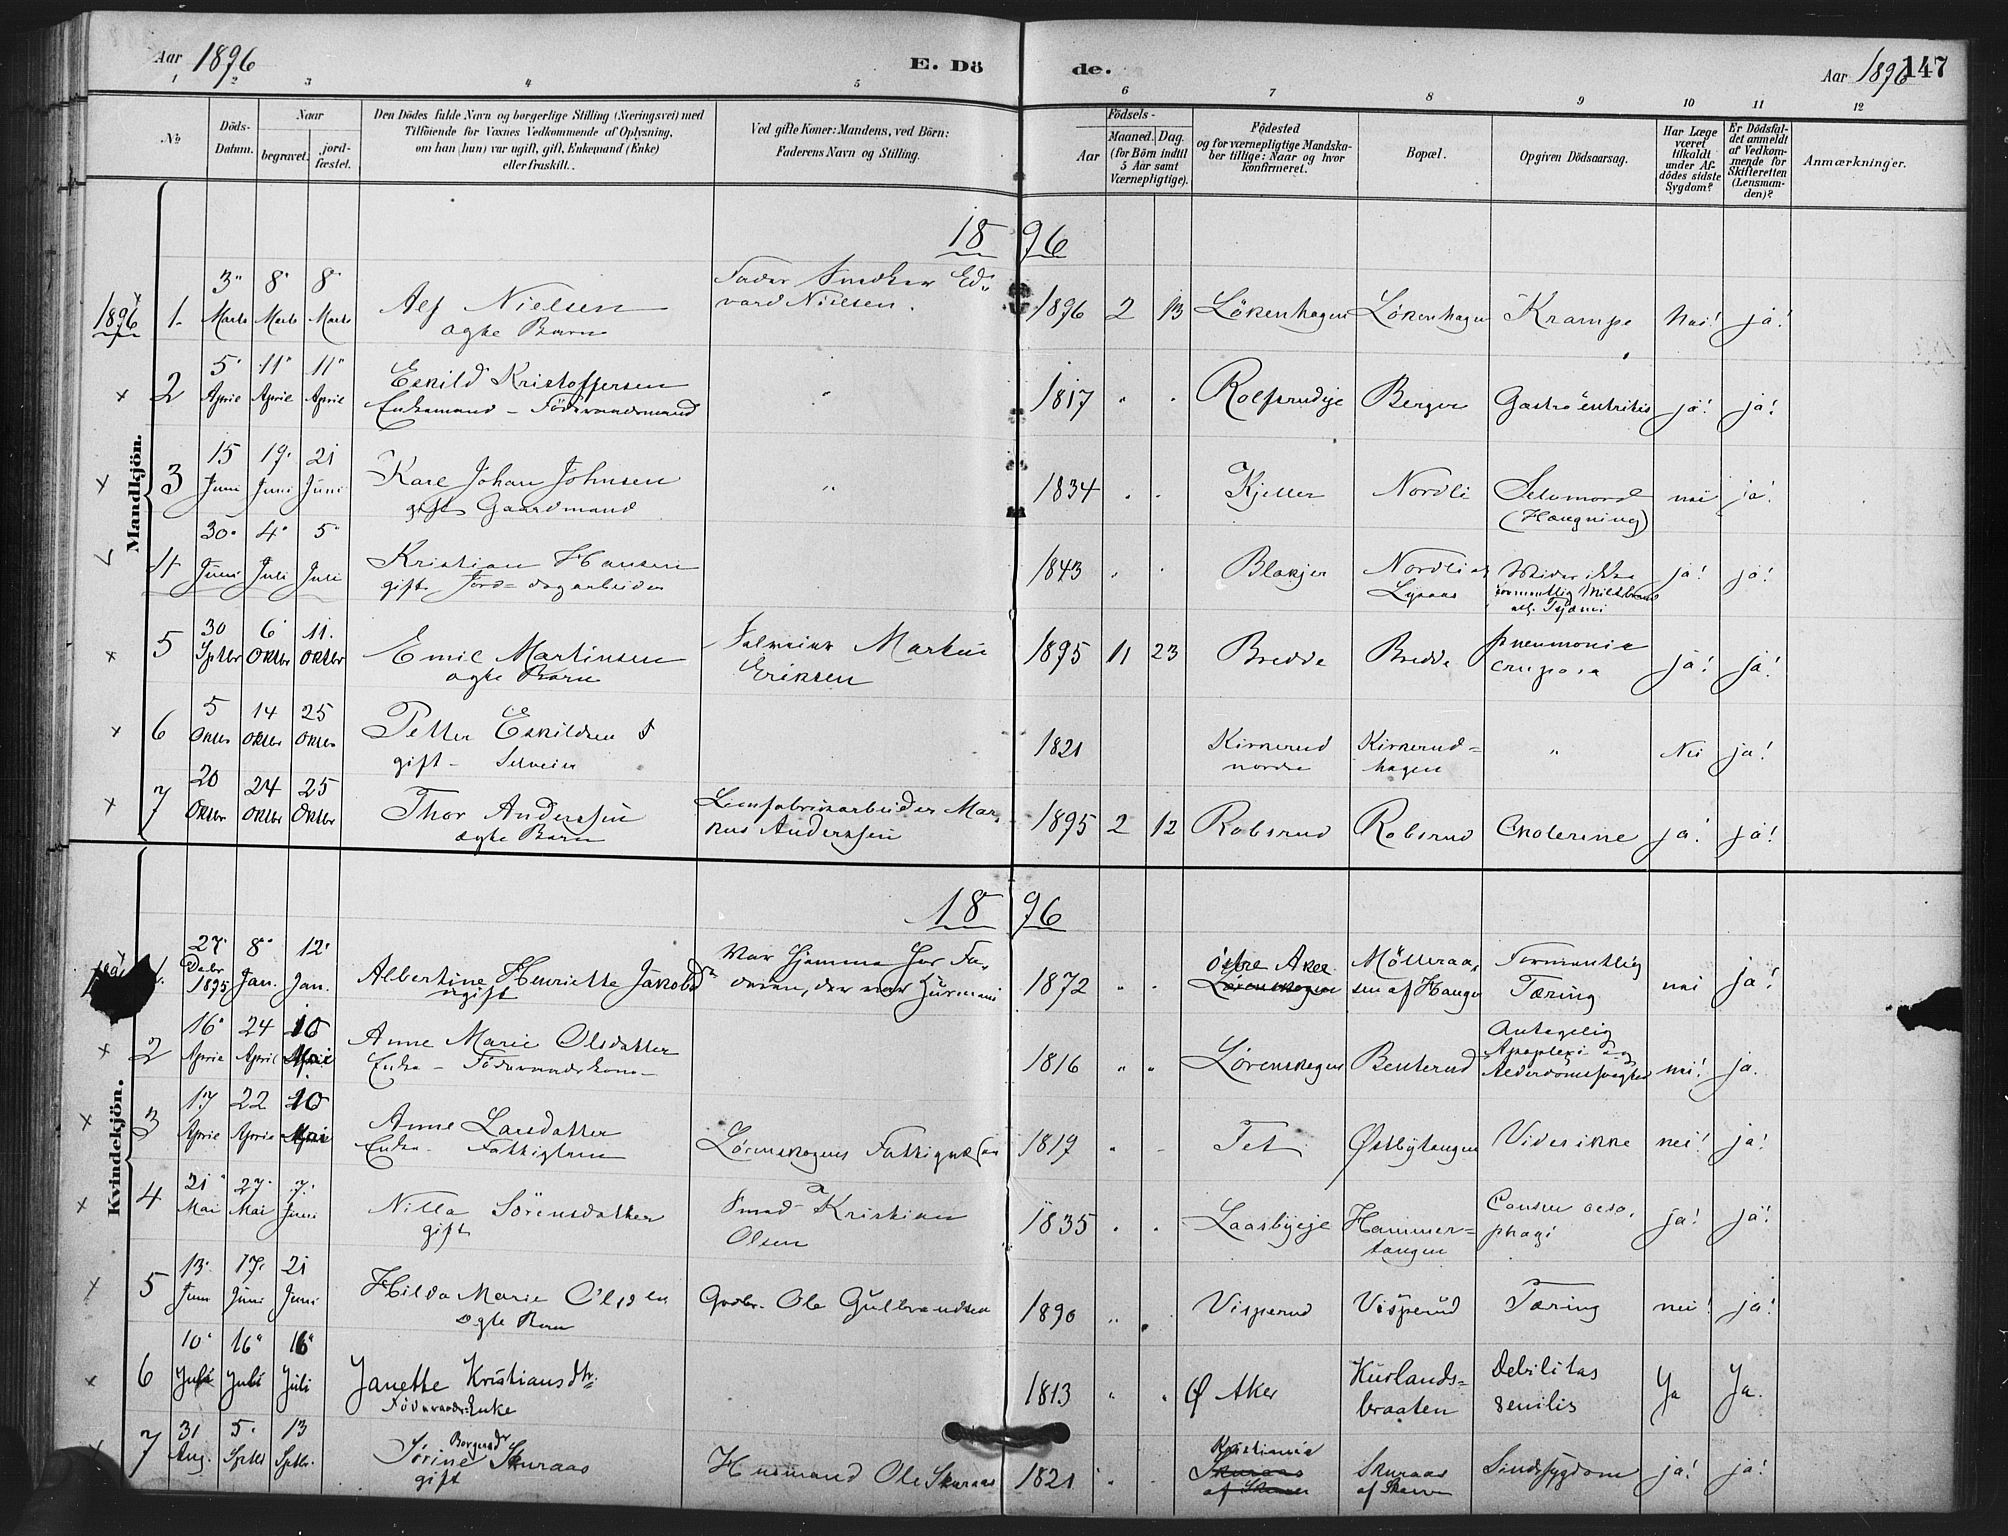 Aar 1896
E. Dö
de.
Aar 1896
147
1 2 3 4 5 6 7 8 9 10 11 12
No
Döds-
Datum.
Naar
begravet.
jord-
fæstet.
Den Dödes fulde Navn og borgerlige Stilling (Næringsvei) med
Tilföiende for Voxnes Vedkommende af Oplysning,
om han (hun) var ugift, gift, Enkemand (Enke)
eller fraskilt.
Ved gifte Koner: Mandens, ved Börn:
Faderens Navn og Stilling.
Födsels-
Aar
Maaned. Dag.
(for Börn indtil
5 Aar samt
Værnepligtige).
Födested
og for værnepligtige Mandska-
ber tillige: Naar og hvor
konfirmeret.
Bopæl.
Opgiven Dödsaarsag.
Har Læge
været
tilkaldt
under Af-
dödes sidste
Sygdom?
Er Dödsfal-
det anmeldt
af Vedkom-
mende for
Skifteretten
(Lensman-
den)?
Anmærkninger.
Mandkjön.
1896
1896
1. 3 Marts 8 Marts 8 Marts
Alf Nielsen
ægte Barn
Fader Snedker Ed-
vard Nielsen.
1896 2 13 Lökenhagen Lökenhagen Krampe Nei! ja!
2 5 April 11 April 11 April
Eskild Kristoffersen
Enkemand - Föderaadsmand
1817 Rolfsrudeje Berger Gastro entritis ja! ja!
3 15 Juni 19 Juni 21 Juni
Karl Johan Johnsen
gift Gaardmand
1834 Kjeller Nordli Selvmord
(Hængning)
nei ja!
4 30 Juni 4 Juli 5 Juli
Kristian Hansen
gift Jord= dagarbeider
1843 Blakjer Nordli
Lysaas
Vides ikke
ja! ja!
5 30 Septbr 6 Oktbr 11. Oktbr
Emil Martinsen
ægte Barn
Selveier Martin
Eriksen
1895 11 23 Bredde Bredde pneumonia
cruposa
ja! ja!
6 5 Oktbr 14 Oktbr 25 Oktbr
Petter Eskildsen
gift - Selveier
1821 Kirkerud
nordre
Kirkerud=
hagen
" Nei ja!
7 20 Oktbr 24 Oktbr 25 Oktbr
Thor Anderssen
ægte Barn
Limfabrikarbeider Mar-
kus Anderssen
1895 2 12 Robsrud Robsrud Cholerine ja! ja!
Kvindekjön.
1896
1. 27 Decbr 1895 8 Jan. 12 Jan.
Albertine Henriette Jakobsdr
ugift
Var hjemme hos Fa-
deren, der var Husmand
1872 Östre Aker
Lørenskogen
Mölleraa-
sen af Haugen
Formentlig
Tæring
nei ja!
2 16 April 24 April 10 Mai
Anne Marie Olsdatter
Enke - Föderaadskone -
1816 Lørenskogen Benterud Antagelig
Apoplexi og
Alderdomssvaghed
nei! ja.
3 17 April 22 April 10 Mai
Anne Larsdatter
Enke - Fattiglem
Lørenskogens Fattigvæsen
1819 Fet Østbytangen Vides ikke nei! ja!
4 21 Mai 27 Mai 7. Juni
Nilla Sörensdatter
gift
Smed Kristian
Olsen
1835 Laasbyeje Hammer=
tangen
ja! ja!
5 13. Juni 17. Juni 21 Juni
Hilda Marie Olsen
ægte Barn
Gbr. Ole Gulbrandsen
1890 Visperud Visperud Tæring nei! ja!
6 10 Juli 16 Juli 16 Juli
Janette Kristiansdtr.
Föderaads=Enke
1813 Ø Aker Kurlands=
braaten
Debilitas
senilis
Ja Ja.
7 31 Aug. 5. Septbr 13 Septbr.
Sörine Skuraas
gift
Husmand Ole Skuraas
1821 Kristiania
Skuraas
Skuraas
af Skarer
Sindssygdom ja! ja!